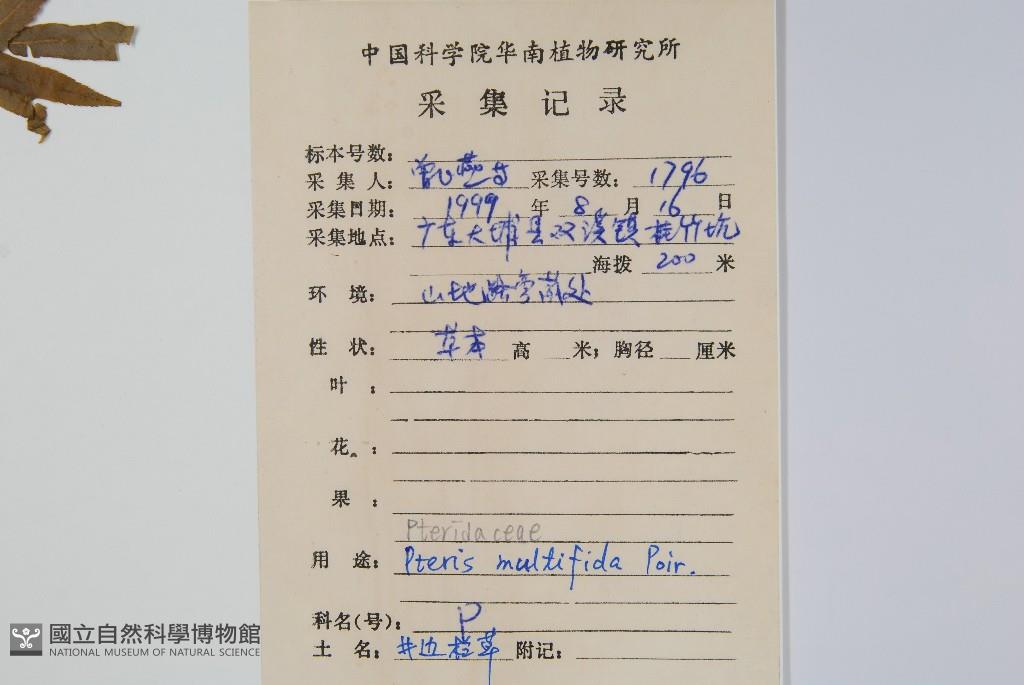 中国科学院华南植物研究所
采集记录
标本号数：
采集人：曾飞燕等 采集号数：1796
采集日期：1999 年 8 月 16 日
采集地点：广东大埔县双溪镇桂竹坑
海拨 200 米
环境：山地路旁荫处
性状：草本 高 米；胸径 厘米
叶：
花。：
果：
Pteridaceae
用途：Pteris multifida Poir.
科名(号)：P
土名：井边栏草 附记：
國立自然科學博物館
NATIONAL MUSEUM OF NATURAL SCIENCE